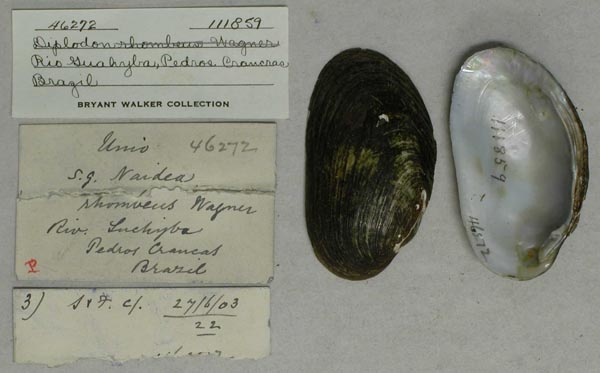 46272 111859
Diplodon rhombeus Wagner
Rio Guahyba, Pedros Crancas
Brazil
BRYANT WALKER COLLECTION
Unio 46272
s.g. Naidea
rhombeus Wagner
Riv. Suchyba
Pedros Crancas
Brazil
3) S & F. c/. 27/6/03
22
111859
46272